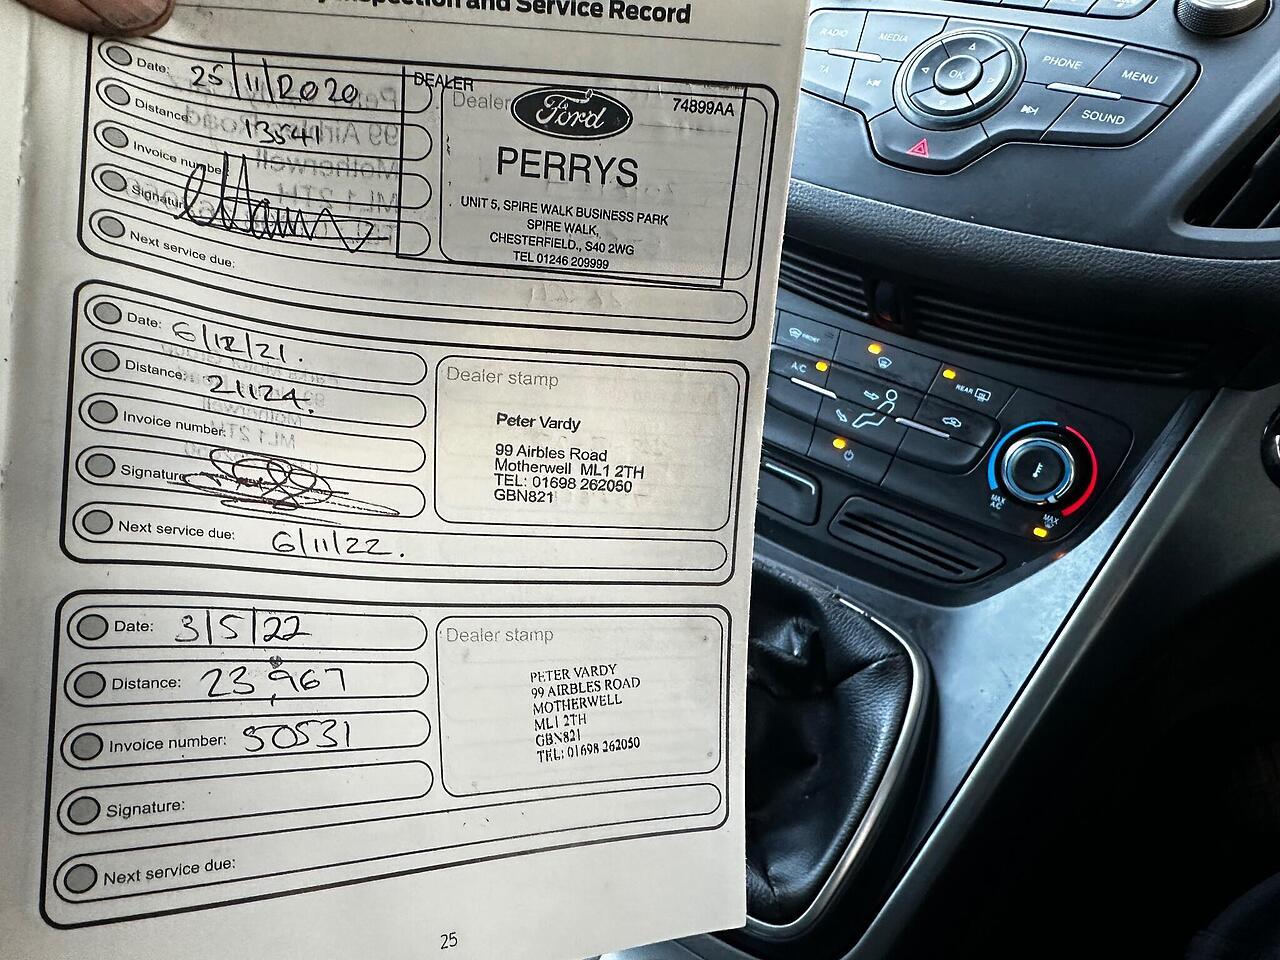 Inspection and Service Record
Date: 25/11/2020
Distance: 13541
Invoice number:
Signature:
Next service due:
DEALER
Dealer
Ford
74899AA
PERRYS
UNIT 5, SPIRE WALK BUSINESS PARK
SPIRE WALK,
CHESTERFIELD., S40 2WG
TEL 01246 209999
Date: 6/12/21.
Distance: 21124.
Invoice number:
Signature
Next service due: 6/11/22.
Dealer stamp
Peter Vardy
99 Airbles Road
Motherwell ML1 2TH
TEL: 01698 262050
GBN821
Date: 3/5/22
Distance: 23,967
Invoice number: 50531
Signature:
Next service due:
Dealer stamp
PETER VARDY
99 AIRBLES ROAD
MOTHERWELL
ML1 2TH
GBN821
TEL: 01698 262050
25
RADIO
MEDIA
TA
OK
PHONE
MENU
SOUND
FRONT
A/C
REAR
MAX
A/C
MAX